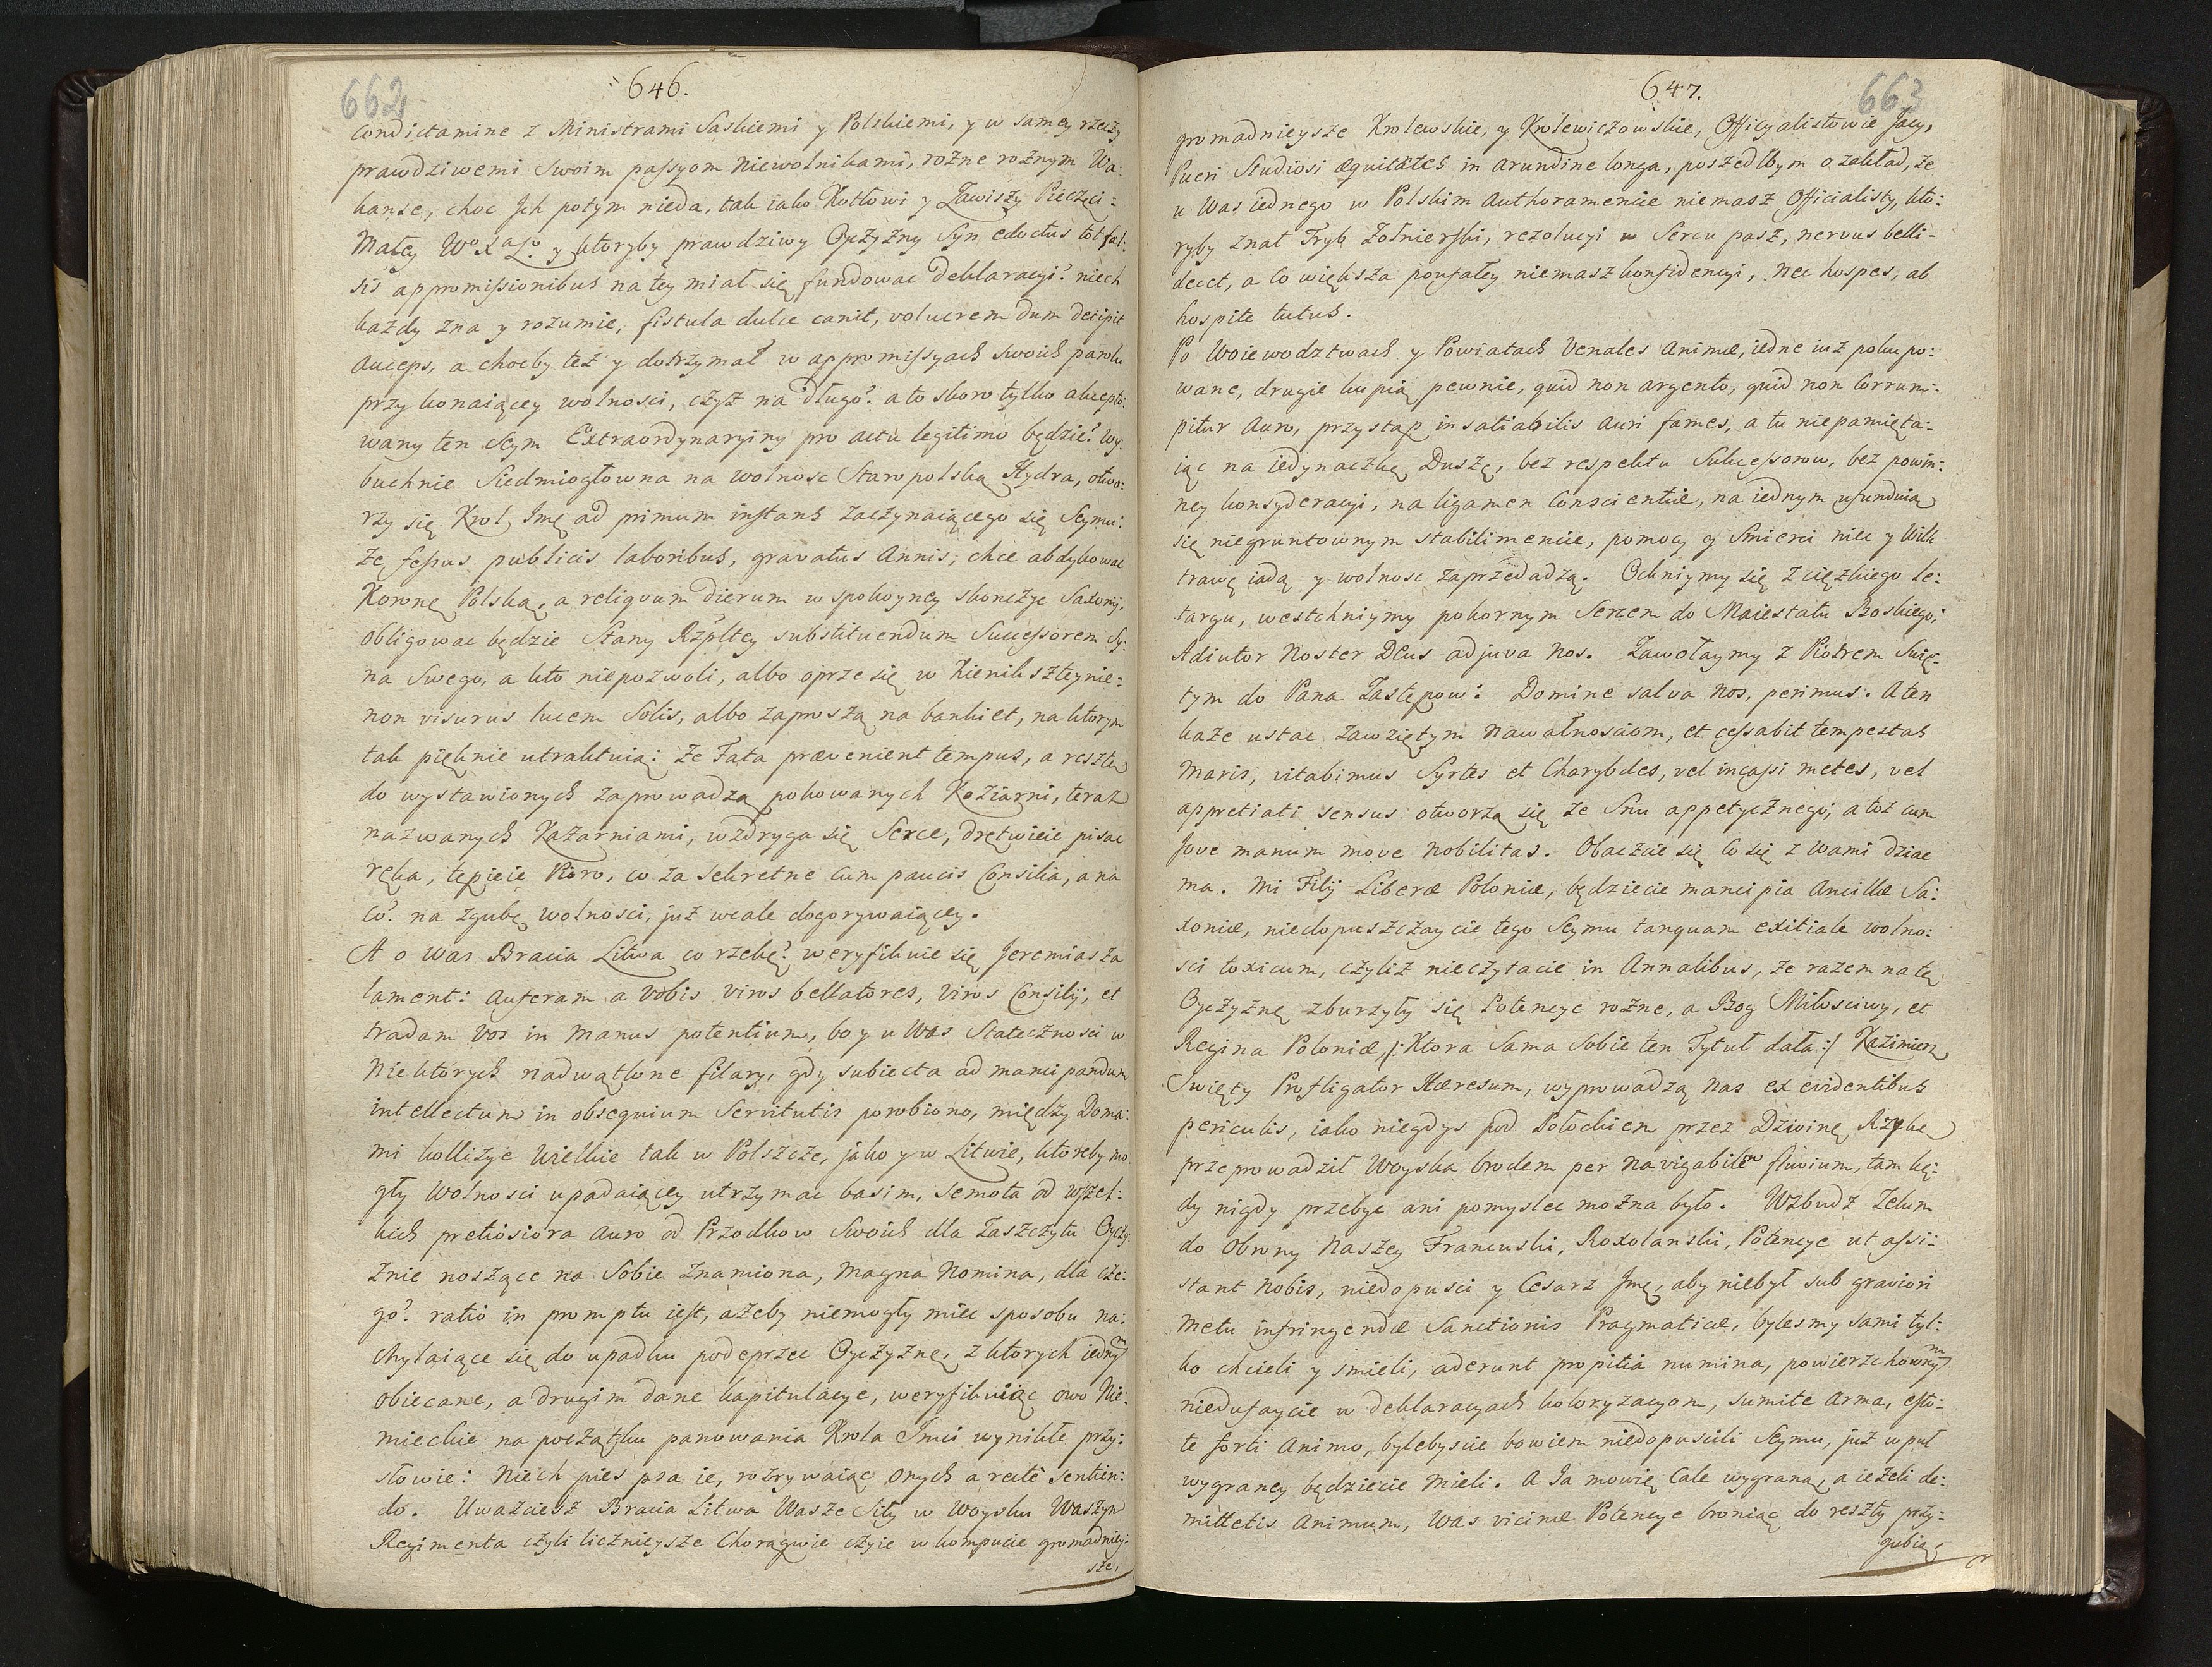 662
646.
condictamine z Ministrami Saskiemi y Polskiemi, y w samey rzeczy
prawdziwemi swoim passyom niewolnikami, rożne rożnym Wa:
kanse, choc Jch potym nieda, tak iako Kotłowi y Zawiszy Pieczęci:
Małey W° X a L° y ktoryby prawdziwy Oyczyzny Syn edoctus tot fal:
sis appromissionibus na tey miał się fundowac deklaracyi? niech
kazdy zna y rozumie, fistula dulce canit, volucrem dum decipit
auceps, a chocby tez y dotrzymał w appromissyach swoich parolu
przy konaiącey wolnosci, czyz na długo? a to skoro tylko akcepto:
wany ten Seym Extraordynaryiny pro actu legitimo będzie? wy:
buchnie Siedmiogłowna na wolnosc Staropolską Hydra, otwo:
rzy się Krol Jmę ad primum instans zaczynaiącego się Seymu:
że fessus publicis laboribus, gravatus Annis, chce abdykowac
Koronę Polską, a reliquum dierum w spokoyney skonczyc Saxonij,
obligowac będzie Stany Rzpltey substituendum Successorem Sy:
na Swego, a kto niepozwoli, albo oprze się w Kienikszteynie:
non visurus lucem Solis, albo zaproszą na bankiet, na ktorym
tak pięknie utraktuią: że Fata praevenient tempus, a resztę
do wystawionych zaprowadzą pokowanych Koziarni, teraz
nazwanych Kazarniami, wzdryga się Serce, drętwieie pisac
ręka, tępieie Pioro, co za sekretne cum paucis Consilia, a na
co? na zgubę wolnosci, już wcale dogorywaiącey.
A o was Bracia Litwa co rzekę? weryfikuie się Jeremiasza
lament: auferam a vobis viros bellatores, viros Consilij, et
tradam vos in manus potentium, bo y u Was Statecznosci w
Niektorych nadwątlone filary, gdy subiecta ad mancipandum
intellectum in obsequium Servitutis porobiono, między Doma:
mi kollizye wielkie tak w Polszcze, jako y w Litwie, ktoreby mo
gły wolnosci upadaiącey utrzymac basim, semota od wszel:
kich pretiosiora auro od Przodkow Swoich dla Zaszczytu Oyczy:
znie noszące na Sobie znamiona, Magna Nomina, dla cze:
go? ratio in promptu iest, ażeby niemogły miec sposobu na:
chylaiące się do upadku podeprzec Oyczyznę, z ktorych iednym
obiecane, a drugim dane kapitulacye, weryfikuiąc owo Nie:
mieckie na początku panowania Krola Jmci wynikłe przy:
słowie: niech pies psa ie, rozrywaiąc onych a recte sentien:
do. Uważciesz Bracia Litwa Wasze Siły w Woysku Waszym
Regimenta czyli licznieysze Chorągwie czyie w kompucie gromadniey:
sze,
647.
663
gromadnieysze Krolewskie, y Krolewiczowskie, Officyalistowie Jacy,
Pueri Studiosi aequitates in arundine longa, poszedłbym o zakład, że
u Was iednego w Polskim Authoramencie niemasz Officialisty, kto:
ryby znał Tryb Zołnierski, rezolucyi w Sercu pasz, nervus belli-
deest, a co większa poufałey niemasz konfidencyi, nec hospes, ab
hospite tutus.
Po Woiewodztwach y Powiatach Venales Animae, iedne iuż pokupo:
wane, drugie kupią pewnie, quid non argento, quid non Corrum:
pitur Auro, przystąp insatiabilis auri fames, a tu niepamięta:
iąc na iedynaczkę Duszę, bez respektu Sukcessorow, bez powin:
ney konsyderacyi, na ligamen Conscientiae, na iednym ufunduią
się niegruntownym stabilimencie, pomocą y Smierci niec y Wilk
trawę iadą y wolnosc zaprzedadzą. Ockniymy się z cięzkiego le:
targu, westchniymy pokornym Sercem do Maiestatu Boskiego,
Adiutor Noster Deus adjuva nos. Zawołaymy z Piotrem Swię:
tym do Pana Zastępow: Domine salva nos, perimus. A ten
kaze ustac zawziętym nawałnosciom, et cessabit tempestas
Maris, vitabimus Syrtes et Charybdes, vel incassi metes, vel
appretiati sensus otworzą się ze Snu appetycznego; a toż cum
Jove manum move nobilitas. Obaczcie się co się z wami dziac
ma. Mi Filij Liberae Poloniae, będziecie mancipia Ancillae Sa:
xoniae, niedopuszczaycie tego Seymu tanquam exitiale wolno:
sci toxicum, czyliz nieczytacie in Annalibus, że razem na tę
Oyczyznę zburzyły się Potencye rożne, a Bog Miłosciwy, et
Regina Poloniae, /:Ktora Sama Sobie ten Tytuł dała:/ Kazimierz
Swięty Profligator Haeresum, wyprowadzą nas ex evidentibus
periculis, iako niegdys pod Połockiem przez Dzwinę Rzekę
przeprowadził Woyska brodem per navigabilem fluvium, tam kę:
dy nigdy przebyc ani pomyslec można było. Wzbudz Zelum
do obrony Naszey Francuski, Roxolanski, Potencye ut assi:
stant nobis, niedopusci y Cesarz Jmę, aby niebył sub graviori
metu infringendae Sanctionis Pragmaticae, bylesmy sami tyl:
ko chcieli y smieli, aderunt propitia numina, powierzchownym
niedufaycie w deklaracyach koloryzacyom, sumite arma, esto:
te forti Animo, bylebyscie bowiem niedopuscili Seymu, już w puł
wygraney będziecie mieli. A Ja mowię Całe wygraną, a ieżeli de:
mittetis Animum, Was vicinae Potencye broniąc do reszty przy:
gubią